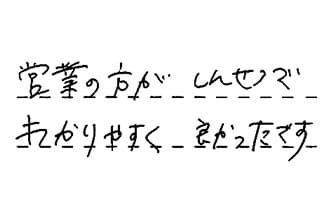 営業の方が しんせつで
わかりやすく 良かったです